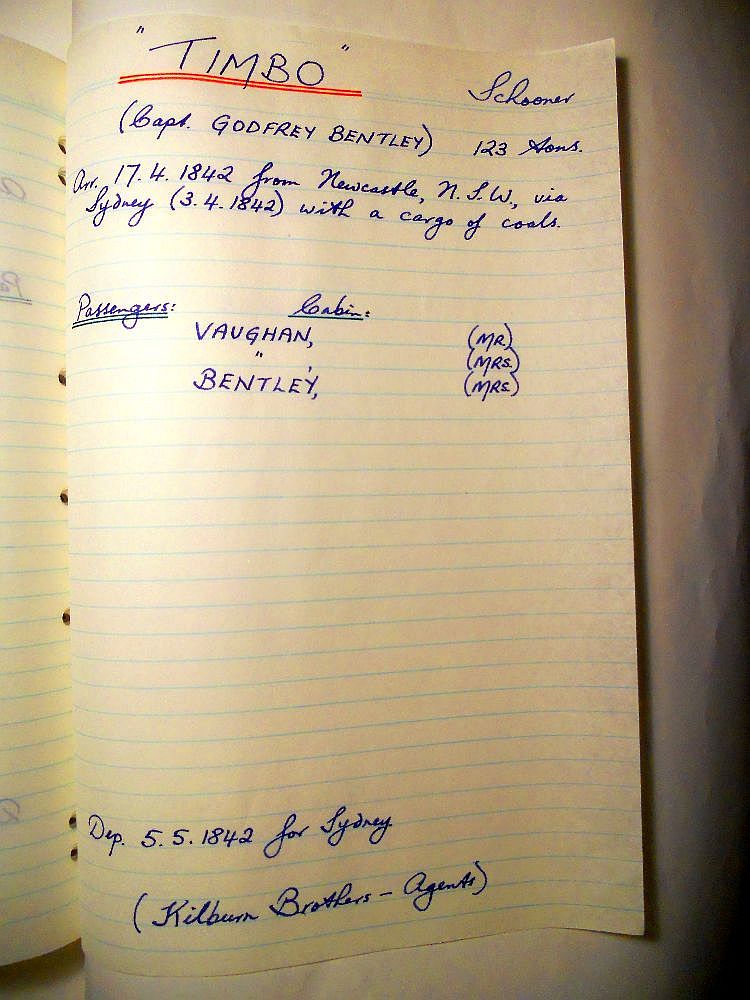 "TIMBO"
Schooner
(Capt. GODFREY BENTLEY) 123 tons.
Arr. 17.4.1842 from Newcastle, N.S.W., via
Sydney (3.4.1842) with a cargo of coals.
Passengers: Cabin:
VAUGHAN, (MR)
" , (MRS.)
BENTLEY, (MRS.)
Dep. 5.5.1842 for Sydney
(Kilburn Brothers - Agents)